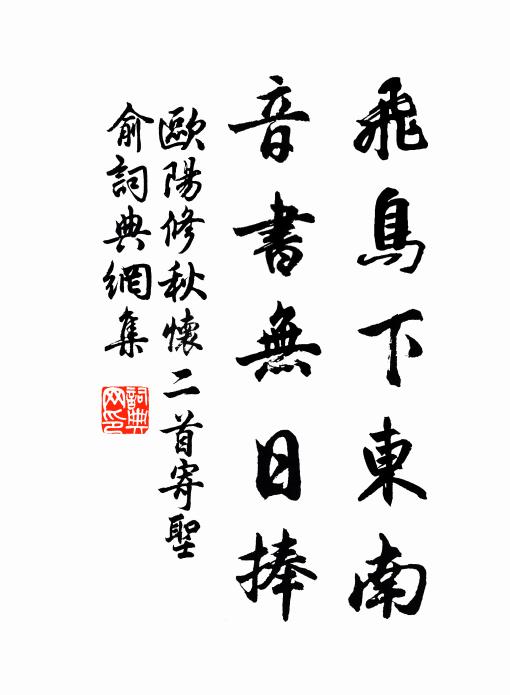 飛鳥下東南
音書無日捧
歐陽修秋懷二首寄聖
俞詞典網集
詞典
网印